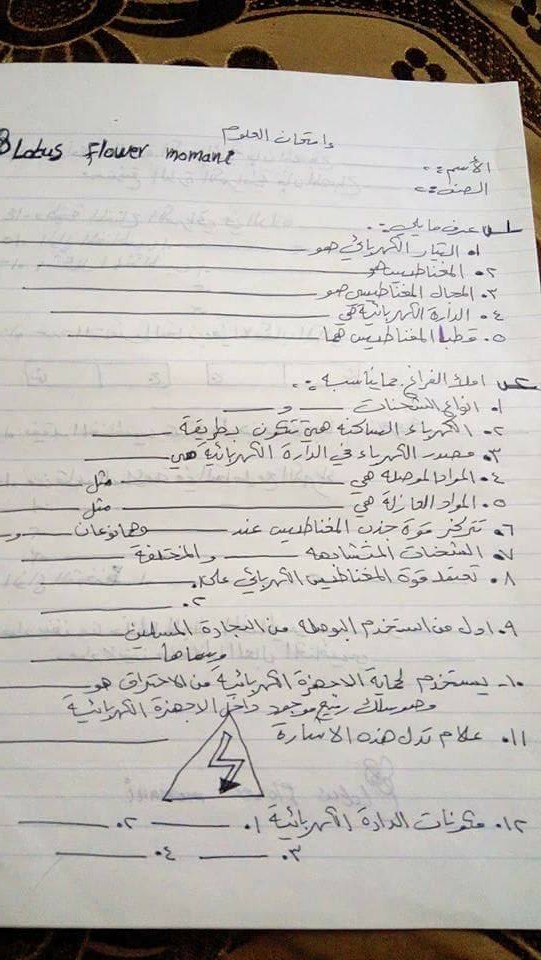 وامتحان العلوم
Lotus flower momani
الأسم :.
الصف :.
س١ عرف مايلي :.
١. التيار الكهربائي هو
٢. المغناطيس هو
٣. المجال المغناطيسي هو
٤. الدارة الكهربائية هي
٥. قطبا المغناطيس هما
س٢ املأ الفراغ بما يناسبه :.
١. انواع الشحنات ـــ و ـــ
٢. الكهرباء الساكنة هي تتكون بطريقة
٣. مصدر الكهرباء في الدارة الكهربائية هي
٤. المواد الموصله هي ـــ مثل
٥. المواد العازلة هي ـــ مثل
٦. تتركز قوة جذب المغناطيس عند ـــ وهما نوعان ـــ و
٧. الشحنات المتشابهه ـــ والمختلفة
٨. تعتمد قوة المغناطيس الكهربائي على ١.
٢.
٩. اول من استخدم البوصله من البحارة المسلمين
وسماها
١٠. يستخدم لحماية الاجهزة الكهربائية من الاحتراق هو
وهو سلك رفيع موجود داخل الاجهزة الكهربائية
١١. علام تدل هذه الاشارة
١٢. مكونات الدارة الكهربائية ١. ـــ ٢.
٣. ـــ ٤.